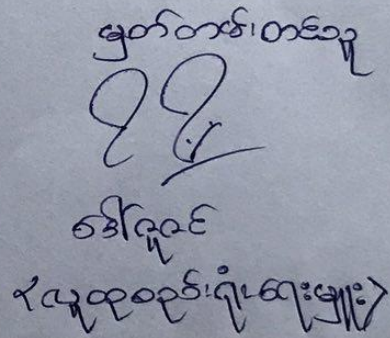 မှတ်တမ်းတင်သူ
ဒေါ်ဇူဇင်
<လူထုစည်းရုံးရေးမှူး>